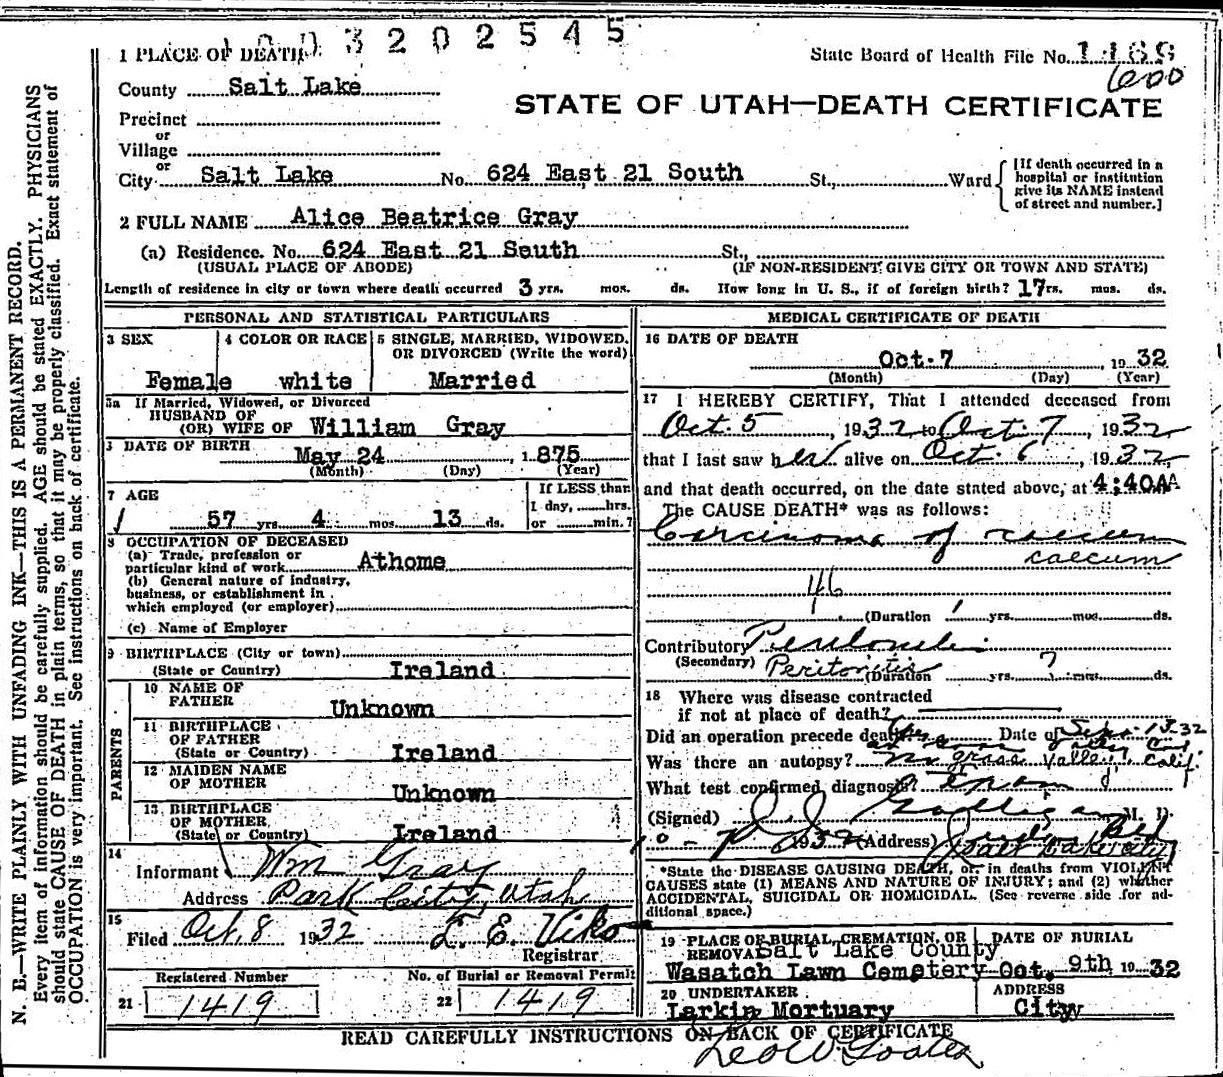 1003202545
1 PLACE OF DEATH
State Board of Health File No. 1469
600
County Salt Lake
STATE OF UTAH—DEATH CERTIFICATE
Precinct
or
Village
or
City Salt Lake No. 624 East 21 South St., Ward
[If death occurred in a hospital or institution give its NAME instead of street and number.]
2 FULL NAME Alice Beatrice Gray
(a) Residence. No. 624 East 21 South St.,
(USUAL PLACE OF ABODE) (IF NON-RESIDENT GIVE CITY OR TOWN AND STATE)
Length of residence in city or town where death occurred 3 yrs. mos. ds. How long in U. S., if of foreign birth? 17rs. mos. ds.
PERSONAL AND STATISTICAL PARTICULARS
3 SEX
Female
4 COLOR OR RACE
white
5 SINGLE, MARRIED, WIDOWED,
OR DIVORCED (Write the word)
Married
5a If Married, Widowed, or Divorced
HUSBAND OF
(OR) WIFE OF William Gray
6 DATE OF BIRTH
May 24, 1875
(Month) (Day) (Year)
7 AGE
57 yrs. 4 mos. 13 ds.
If LESS than
1 day, hrs.
or min.?
8 OCCUPATION OF DECEASED
(a) Trade, profession or
particular kind of work Athome
(b) General nature of industry,
business, or establishment in
which employed (or employer)
(c) Name of Employer
9 BIRTHPLACE (City or town)
(State or Country) Ireland
PARENTS
10 NAME OF
FATHER Unknown
11 BIRTHPLACE
OF FATHER
(State or Country) Ireland
12 MAIDEN NAME
OF MOTHER Unknown
13 BIRTHPLACE
OF MOTHER
(State or Country) Ireland
14
Informant Wm Gray
Address Park City, Utah
15
Filed Oct. 8 1932 L. E. Viko
Registrar
Registered Number
21 1419
No. of Burial or Removal Permit
22 1419
MEDICAL CERTIFICATE OF DEATH
16 DATE OF DEATH
Oct. 7 1932
(Month) (Day) (Year)
17 I HEREBY CERTIFY, That I attended deceased from
Oct. 5, 1932 to Oct. 7, 1932
that I last saw her alive on Oct. 6, 1932,
and that death occurred, on the date stated above, at 4:40A
The CAUSE DEATH* was as follows:
Carcinoma of caecum
caecum
46
(Duration 1 yrs. mos. ds.
Contributory Peritonitis
(Secondary) Peritonitis
(Duration yrs. mos. ds.
18 Where was disease contracted
if not at place of death?
Did an operation precede death? Yes Date of Sept. 1932
Was there an autopsy? no grass Valley, Calif.
What test confirmed diagnosis?
(Signed) M. D.
10- 1932 (Address) Bld
Salt Lake City
*State the DISEASE CAUSING DEATH, or, in deaths from VIOLENT
CAUSES state (1) MEANS AND NATURE OF INJURY; and (2) whether
ACCIDENTAL, SUICIDAL OR HOMICIDAL. (See reverse side for ad-
ditional space.)
19 PLACE OF BURIAL, CREMATION, OR
REMOVAL Salt Lake County
Wasatch Lawn Cemetery
DATE OF BURIAL
Oct. 9th 1932
20 UNDERTAKER
Larkin Mortuary
ADDRESS
City
READ CAREFULLY INSTRUCTIONS ON BACK OF CERTIFICATE
Leo W. Goates
N. B.—WRITE PLAINLY WITH UNFADING INK—THIS IS A PERMANENT RECORD.
Every item of information should be carefully supplied. AGE should be stated EXACTLY. PHYSICIANS
should state CAUSE OF DEATH in plain terms, so that it may be properly classified. Exact statement of
OCCUPATION is very important. See instructions on back of certificate.